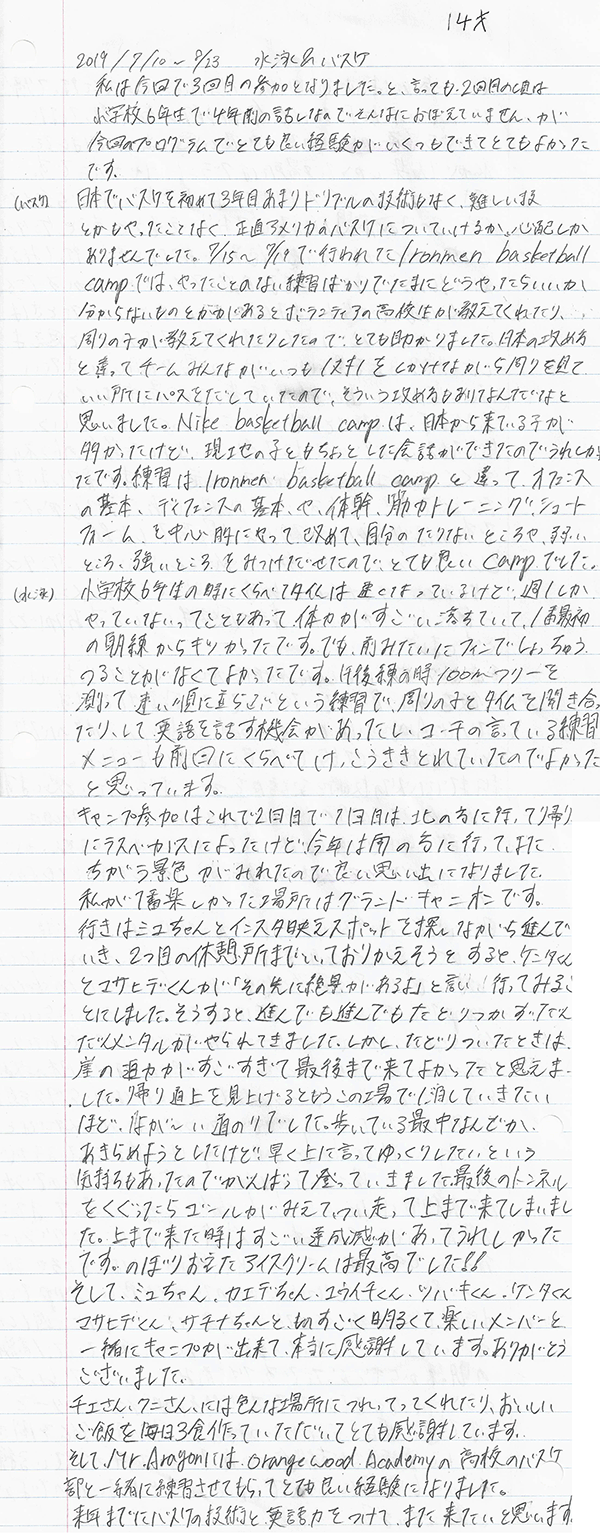 14才
2019/7/10〜8/23 水泳&バスケ
私は今回で3回目の参加となりました。と、言っても2回目の頃は
小学校6年生で4年前の話しなのでそんなにおぼえていません、が
今回のプログラムでとても良い経験がいくつもできてとてもよかった
です。
(バスケ) 日本でバスケを初めて3年目あまりドリブルの技術もなく、難しい技
とかもやったことなく、正直アメリカのバスケについていけるか、心配しか
ありませんでした。7/15〜7/19で行われてたIronmen basketball
campでは、やったことのない練習ばかりでたまにどうやったらいいか
分からないものとかがあるとボランティアの高校生が教えてくれたり、
周りの子が教えてくれたりしたので、とても助かりました。日本の攻め方
と違ってチームみんながいつも1対1をしかけながら周りを見て
いい所にパスをだしていたので、そういう攻め方もありなんだなと
思いました。Nike basketball campは、日本から来ている子が
多かったけど、現地の子ともちょっとした会話ができたのでうれしかっ
たです。練習はIronmen basketball campと違って、オフェンス
の基本、ディフェンスの基本、や、体幹、筋力トレーニング、シュート
フォーム、を中心的にやって、改めて、自分のたりないところや、弱い
ところ、強いところ、をみつけだせたので、とても良いcampでした。
(水泳) 小学校6年生の時にくらべてタイムは速くなっているけど、週1しか
やっていないってこともあって、体力がすごい落ちていて、1番最初
の朝練からキツかったです。でも、前みたいにフィンでしょっちゅう
つることがなくてよかったです。午後練の時100mフリーを
測って速い順に立らぶという練習で、周りの子とタイムを聞き合っ
たり、して英語を話す機会があったし、コーチの言っている練習
メニューも前回にくらべてけっこうききとれていたのでよかった
と思っています。
キャンプ参加はこれで2回目で1回目は、北の方に行って帰り
にラスベガスによったけど、今年は南の方に行って、また
ちがう景色がみれたので良い思い出になりました。
私が1番楽しかった場所はグランドキャニオンです。
行きはミユちゃんとインスタ映えスポットを探しながら進んで
いき、2つ目の休憩所までいっておりかえそうとすると、ケンタくん
とマサヒデくんが「その先に絶景があるよ」と言い、行ってみるこ
とにしました。そうすると、進んでも進んでもたどりつかずだんだ
だんメンタルがやられてきました。しかし、たどりついたときは、
崖の迫力がすごすぎて最後まで来てよかったと思えま
した。帰り道上を見上げるともうこの場で1泊していきたい
ほど、なが〜い道のりでした。歩いている最中なんどか、
あきらめようとしたけど、早く上に言ってゆっくりしたいという
気持ちもあったのでがんばって登っていきました。最後のトンネル
をくぐったらゴールがみえて、つい走って上まで来てしまいまし
た。上まで来た時はすごい達成感があってうれしかった
です。のぼりおえたアイスクリームは最高でした!!
そして、ミユちゃん、カエデちゃん、ユウイチくん、ツバキくん、ケンタくん
マサヒデくん、サチナちゃんと、ものすごく明るくて、楽しいメンバーと
一緒にキャンプが出来て、本当に感謝しています。ありがとう
ございました。
チエさん、クニさん、には色んな場所につれてってくれたり、おいしい
ご飯を毎日3食作っていただいてとても感謝しています。
そして、Mr.AragonにはOrangewood Academyの高校のバスケ
部と一緒に練習させてもらってとても良い経験になりました。
来年までにバスケの技術と英語力をつけて、また来たいと思います。